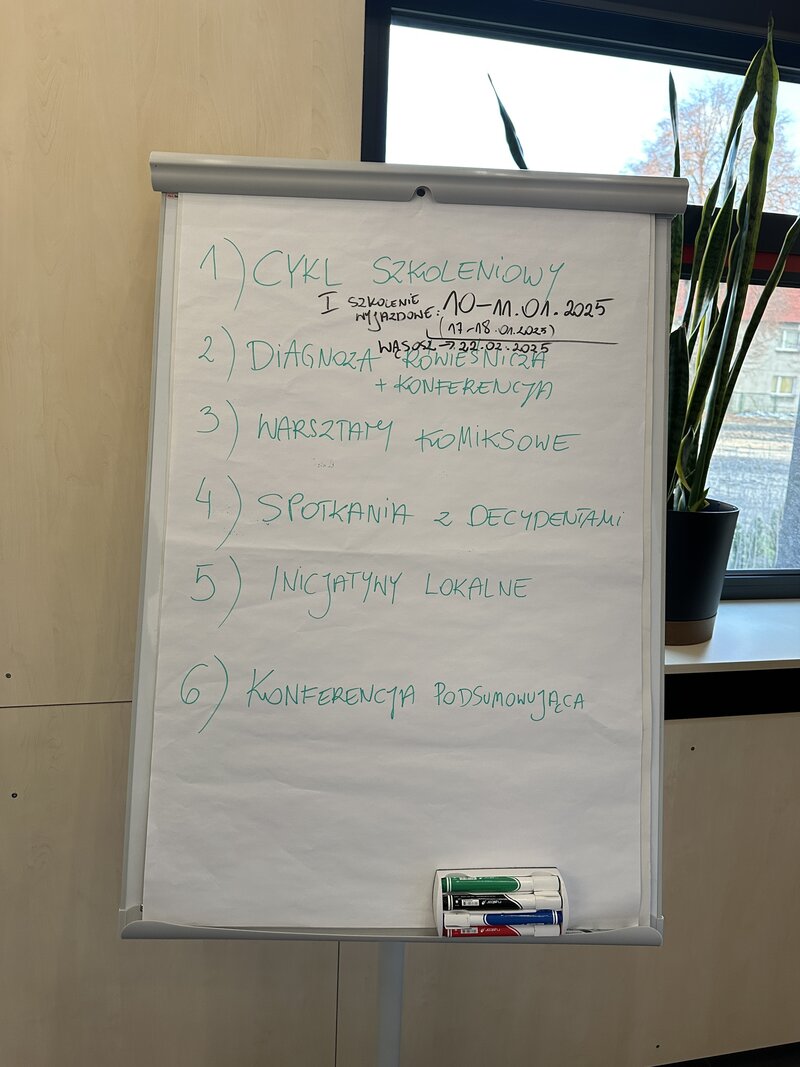 1) CYKL SZKOLENIOWY
I SZKOLENIE WYJAZDOWE: 10-11.01.2025
(17-18.01.2025)
WĄSOSZ → 22.02.2025
2) DIAGNOZA RÓWIEŚNICZA
+ KONFERENCJA
3) WARSZTATY KOMIKSOWE
4) SPOTKANIA z DECYDENTAMI
5) INICJATYWY LOKALNE
6) KONFERENCJA PODSUMOWUJĄCA